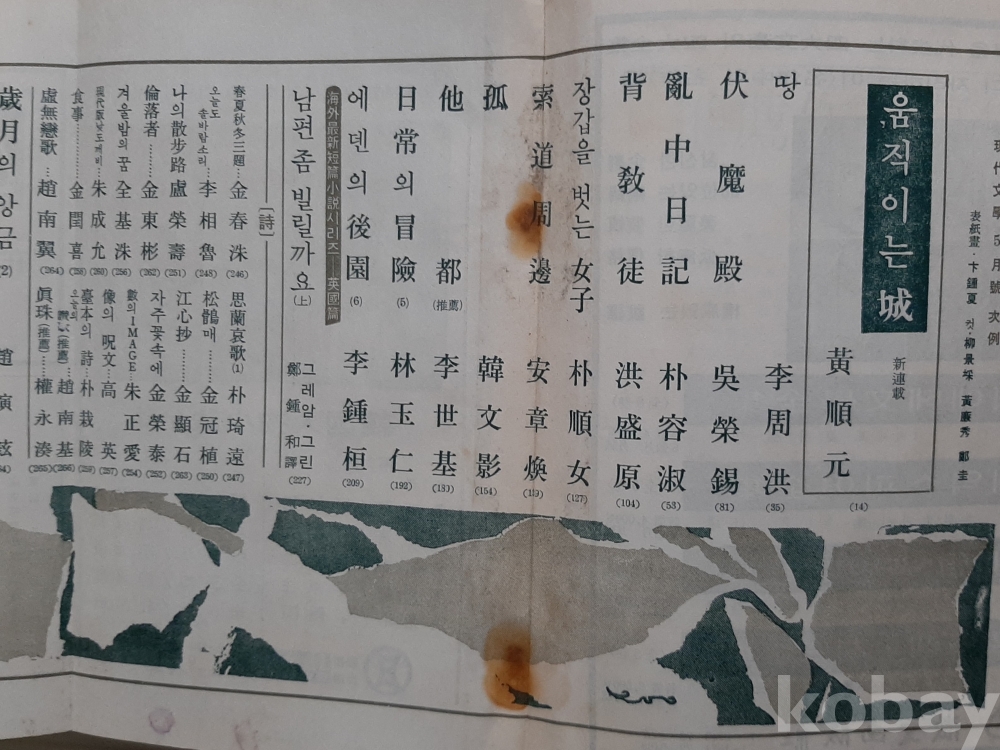 現代文學5月號 次例
表紙畫·卞鍾夏 컷·柳景埰·黃廉秀·鄭圭
움직이는 城
新連載
黃順元
(14)
땅 李周洪 (35)
伏魔殿 吳榮錫 (81)
亂中日記 朴容淑 (53)
背敎徒 洪盛原 (104)
장갑을 벗는 女子 朴順女 (127)
索道周邊 安章煥
孤 韓文影 (154)
他都(推薦) 李世基
日常의 冒險(5) 林玉仁 (192)
에덴의 後園(6) 李鍾桓 (209)
海外最新短篇小說시리즈—英國篇
남편 좀 빌릴까요(上) 그레암·그린 鄭鍾和譯 (227)
〔詩〕
春夏秋冬三題…金春洙(246)
오늘도 솔바람소리…李相魯(248)
나의 散步路 盧榮壽(251)
倫落者………金東彬(262)
겨울밤의 꿈 全基洙(256)
現代版낮도깨비…朱成允
食事…………金閏喜(258)
虛無戀歌…趙南翼(264)
思蘭哀歌(1) 朴琦遠(247)
松鶴매…金冠植(250)
江心抄……金顯石(263)
자주꽃속에 金榮泰(252)
數의IMAGE…朱正愛(254)
像의 呪文…高英(257)
臺本의 詩 朴栽陵(259)
오늘의 讚(推薦) 趙南基(266)
眞珠(推薦)…權永湊(265)
歲月의 앙금
(2)
趙演鉉
kobay